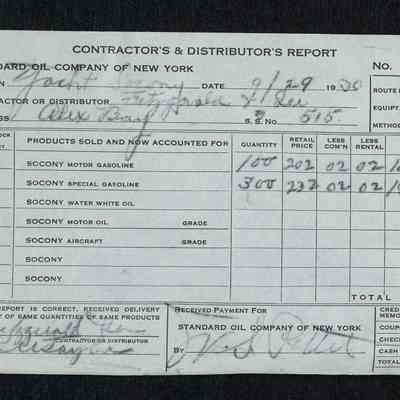 CONTRACTOR'S & DISTRIBUTOR'S REPORT
NDARD OIL COMPANY OF NEW YORK No.
N Yacht DATE 9/29 1930 ROUTE
ACTOR OR DISTRIBUTOR Fitzgerald & Lee EQUIP.
SS Alex Bay S. S. No. 515. METHOD
PRODUCTS SOLD AND NOW ACCOUNTED FOR QUANTITY RETAIL PRICE LESS COM'N LESS RENTAL
SOCONY MOTOR GASOLINE 100 202 02 02
SOCONY SPECIAL GASOLINE 300 232 02 02
SOCONY WATER WHITE OIL
SOCONY MOTOR OIL GRADE
SOCONY AIRCRAFT GRADE
SOCONY
SOCONY
TOTAL
REPORT IS CORRECT, RECEIVED DELIVERY
Y OF SAME QUANTITIES OF SAME PRODUCTS
CONTRACTOR OR DISTRIBUTOR
RECEIVED PAYMENT FOR
STANDARD OIL COMPANY OF NEW YORK
BY
CRED
MEMO
COUPO
CHECK
CASH
TOTAL